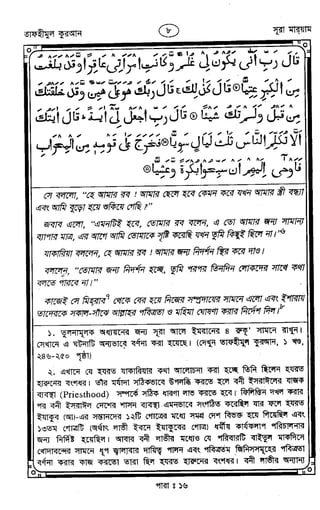 তাফহীমুল কুরআন
৮
সূরা মারয়াম
قَالَ رَبِّ أَنّٰى يَكُوْنُ لِيْ غُلٰمٌ وَّكَانَتِ امْرَاَتِيْ عَاقِرًا وَّقَدْ بَلَغْتُ
مِنَ الْكِبَرِ عِتِيًّا قَالَ كَذٰلِكَ قَالَ رَبُّكَ هُوَ عَلَيَّ هَيِّنٌ وَّقَدْ خَلَقْتُكَ
مِنْ قَبْلُ وَلَمْ تَكُ شَيْئًا قَالَ رَبِّ اجْعَلْ لِّيْ اٰيَةً قَالَ اٰيَتُكَ
اَلَّا تُكَلِّمَ النَّاسَ ثَلٰثَ لَيَالٍ سَوِيًّا فَخَرَجَ عَلٰى قَوْمِهٖ مِنَ الْمِحْرَابِ
فَاَوْحٰى اِلَيْهِمْ اَنْ سَبِّحُوْا بُكْرَةً وَّعَشِيًّا
সে বললো, “হে আমার রব! আমার ছেলে হবে কেমন করে যখন আমার স্ত্রী বন্ধ্যা
এবং আমি বুড়ো হয়ে শুকিয়ে গেছি?”
জবাব এলো, “এমনটিই হবে, তোমার রব বলেন, এ তো আমার জন্য সামান্য
ব্যাপার মাত্র, এর আগে আমি তোমাকে সৃষ্টি করেছি যখন তুমি কিছুই ছিলে না।”
যাকারিয়া বললেন, হে আমার রব! আমার জন্য নিদর্শন স্থির করে দাও।
বললেন, “তোমার জন্য নিদর্শন হচ্ছে, তুমি পরপর তিনদিন লোকদের সাথে কথা
বলতে পারবে না।”
কাজেই সে মিহরাব থেকে বের হয়ে নিজের সম্প্রদায়ের সামনে এলো এবং ইশারায়
তাদেরকে সকাল-সাঁঝে আল্লাহর পবিত্রতা ও মহিমা ঘোষণা করার নির্দেশ দিল।
১. তুলনামূলক অধ্যয়নের জন্য সূরা আলে ইমরানের ৪ রুকূ’ সামনে রাখুন।
সেখানে এ ঘটনাটি অন্যভাবে বর্ণনা করা হয়েছে। (দেখুন তাফহীমুল কুরআন, ১ খণ্ড,
২৪৬-২৫০ পৃষ্ঠা)
২. এখানে যে হযরত যাকারিয়ার কথা আলোচনা করা হচ্ছে তিনি ছিলেন হযরত
হারুনের বংশধর। তাঁর মর্যাদা সঠিকভাবে উপলব্ধি করতে হলে বনী ইসরাঈলের যাজক
ব্যবস্থা (Priesthood) সম্পর্কে সঠিক ধারণা লাভ করতে হবে। ফিলিস্তিন দখল করার
পর বনী ইসরাঈল দেশের শাসন ব্যবস্থা এমনভাবে সংগঠিত করেছিল যার ফলে হযরত
ইয়াকূব (আ)-এর সন্তানদের ১২টি গোত্রের মধ্যে সমগ্র দেশ বিভক্ত হয়ে গিয়েছিল এবং
১৩তম গোত্রটি (অর্থাৎ লাভী ইবনে ইয়াকূবের গোত্র) ধর্মীয় কার্যকলাপ পরিচালনার
জন্য নির্দিষ্ট হয়েছিল। আবার বনী লাভীর মধ্যেও যে পরিবারটি বাইতুল মাকদিসে
খোদাবন্দের সামনে ধূপ জ্বালাবার দায়িত্ব পালন এবং পবিত্রতম জিনিসসমূহের পবিত্রতা
বর্ণনা করার কাজ করতো তারা ছিল হযরত হারুনের বংশধর। বনী লাভীর অন্যান্য
পারা : ১৬